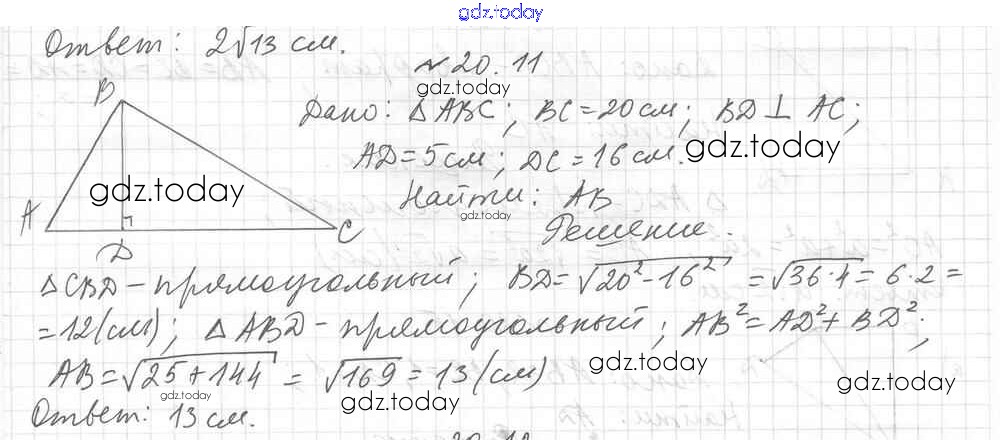 gdz.today
Ответ: 2√13 см.
№ 20.11
gdz.today
B
Дано: △ABC; BC=20см; BD⊥AC;
gdz.today
AD=5см; DC=16см.
gdz.today
Найти: AB
gdz.today
A
C
D
Решение.
△CBD-прямоугольный; BD=√20²-16² =√36·4=6·2=
=12(см); △ABD-прямоугольный; AB²=AD²+BD²;
AB=√25+144 = √169=13(см)
gdz.today
gdz.today
gdz.today
gdz.today
Ответ: 13см.